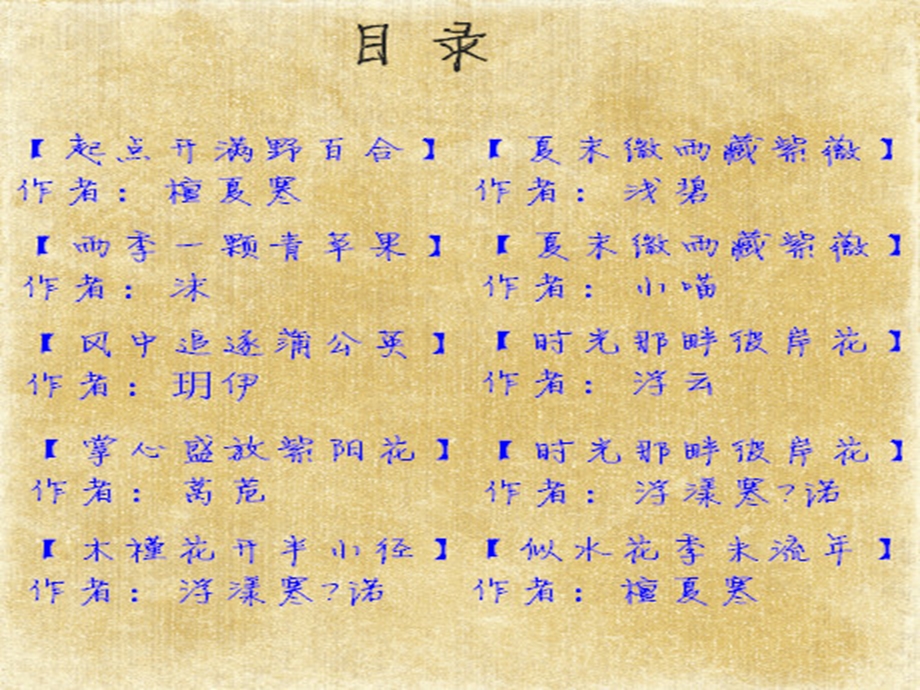 目录
【起点开满野百合】
作者：檀夏寒
【雨季一颗青苹果】
作者：沐
【风中追逐蒲公英】
作者：玥伊
【掌心盛放紫阳花】
作者：莴苨
【木槿花开半小径】
作者：浮漾寒?诺
【夏末微雨藏紫薇】
作者：浅碧
【夏末微雨藏紫薇】
作者：小喵
【时光那畔彼岸花】
作者：浮云
【时光那畔彼岸花】
作者：浮漾寒?诺
【似水花季未流年】
作者：檀夏寒